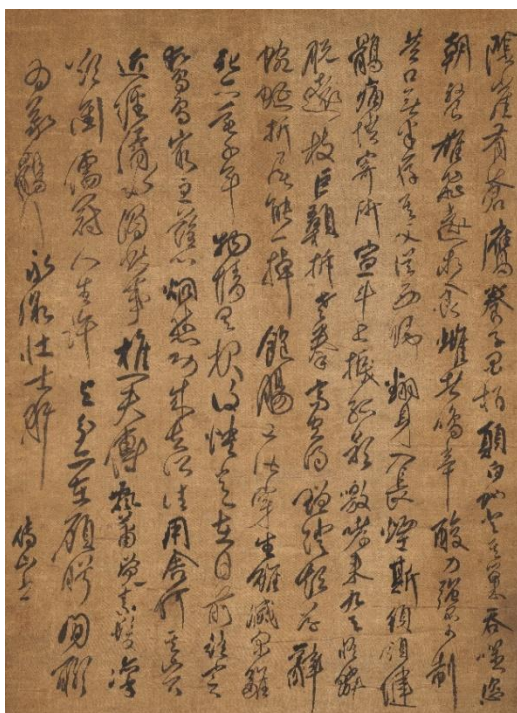 陰崖有蒼鷹養子黑柏顛白蛇登其巢吞噬恣
朝餐雄飛遠求食雌者鳴辛酸力強不可制
黃口無半存其父從西歸翻身入長煙斯須領健
鶻痛憤寄所宣斗上捩孤影噭哮來九天修鱗
脫遠枝巨顙拆老拳高空得蹭蹬短草辭
蜿蜒折尾能一掉飽腸皆已穿生雖滅眾雛
死亦垂千年物情有報復快意貴目前茲實
鷙鳥最急難心炯然功成失所往用舍何其賢
近經潏水湄此事樵夫傳飄蕭覺素髮凜
欲衝儒冠人生許與分亦在顧盼間聊
為義鶻行永激壯士肝 傅山書